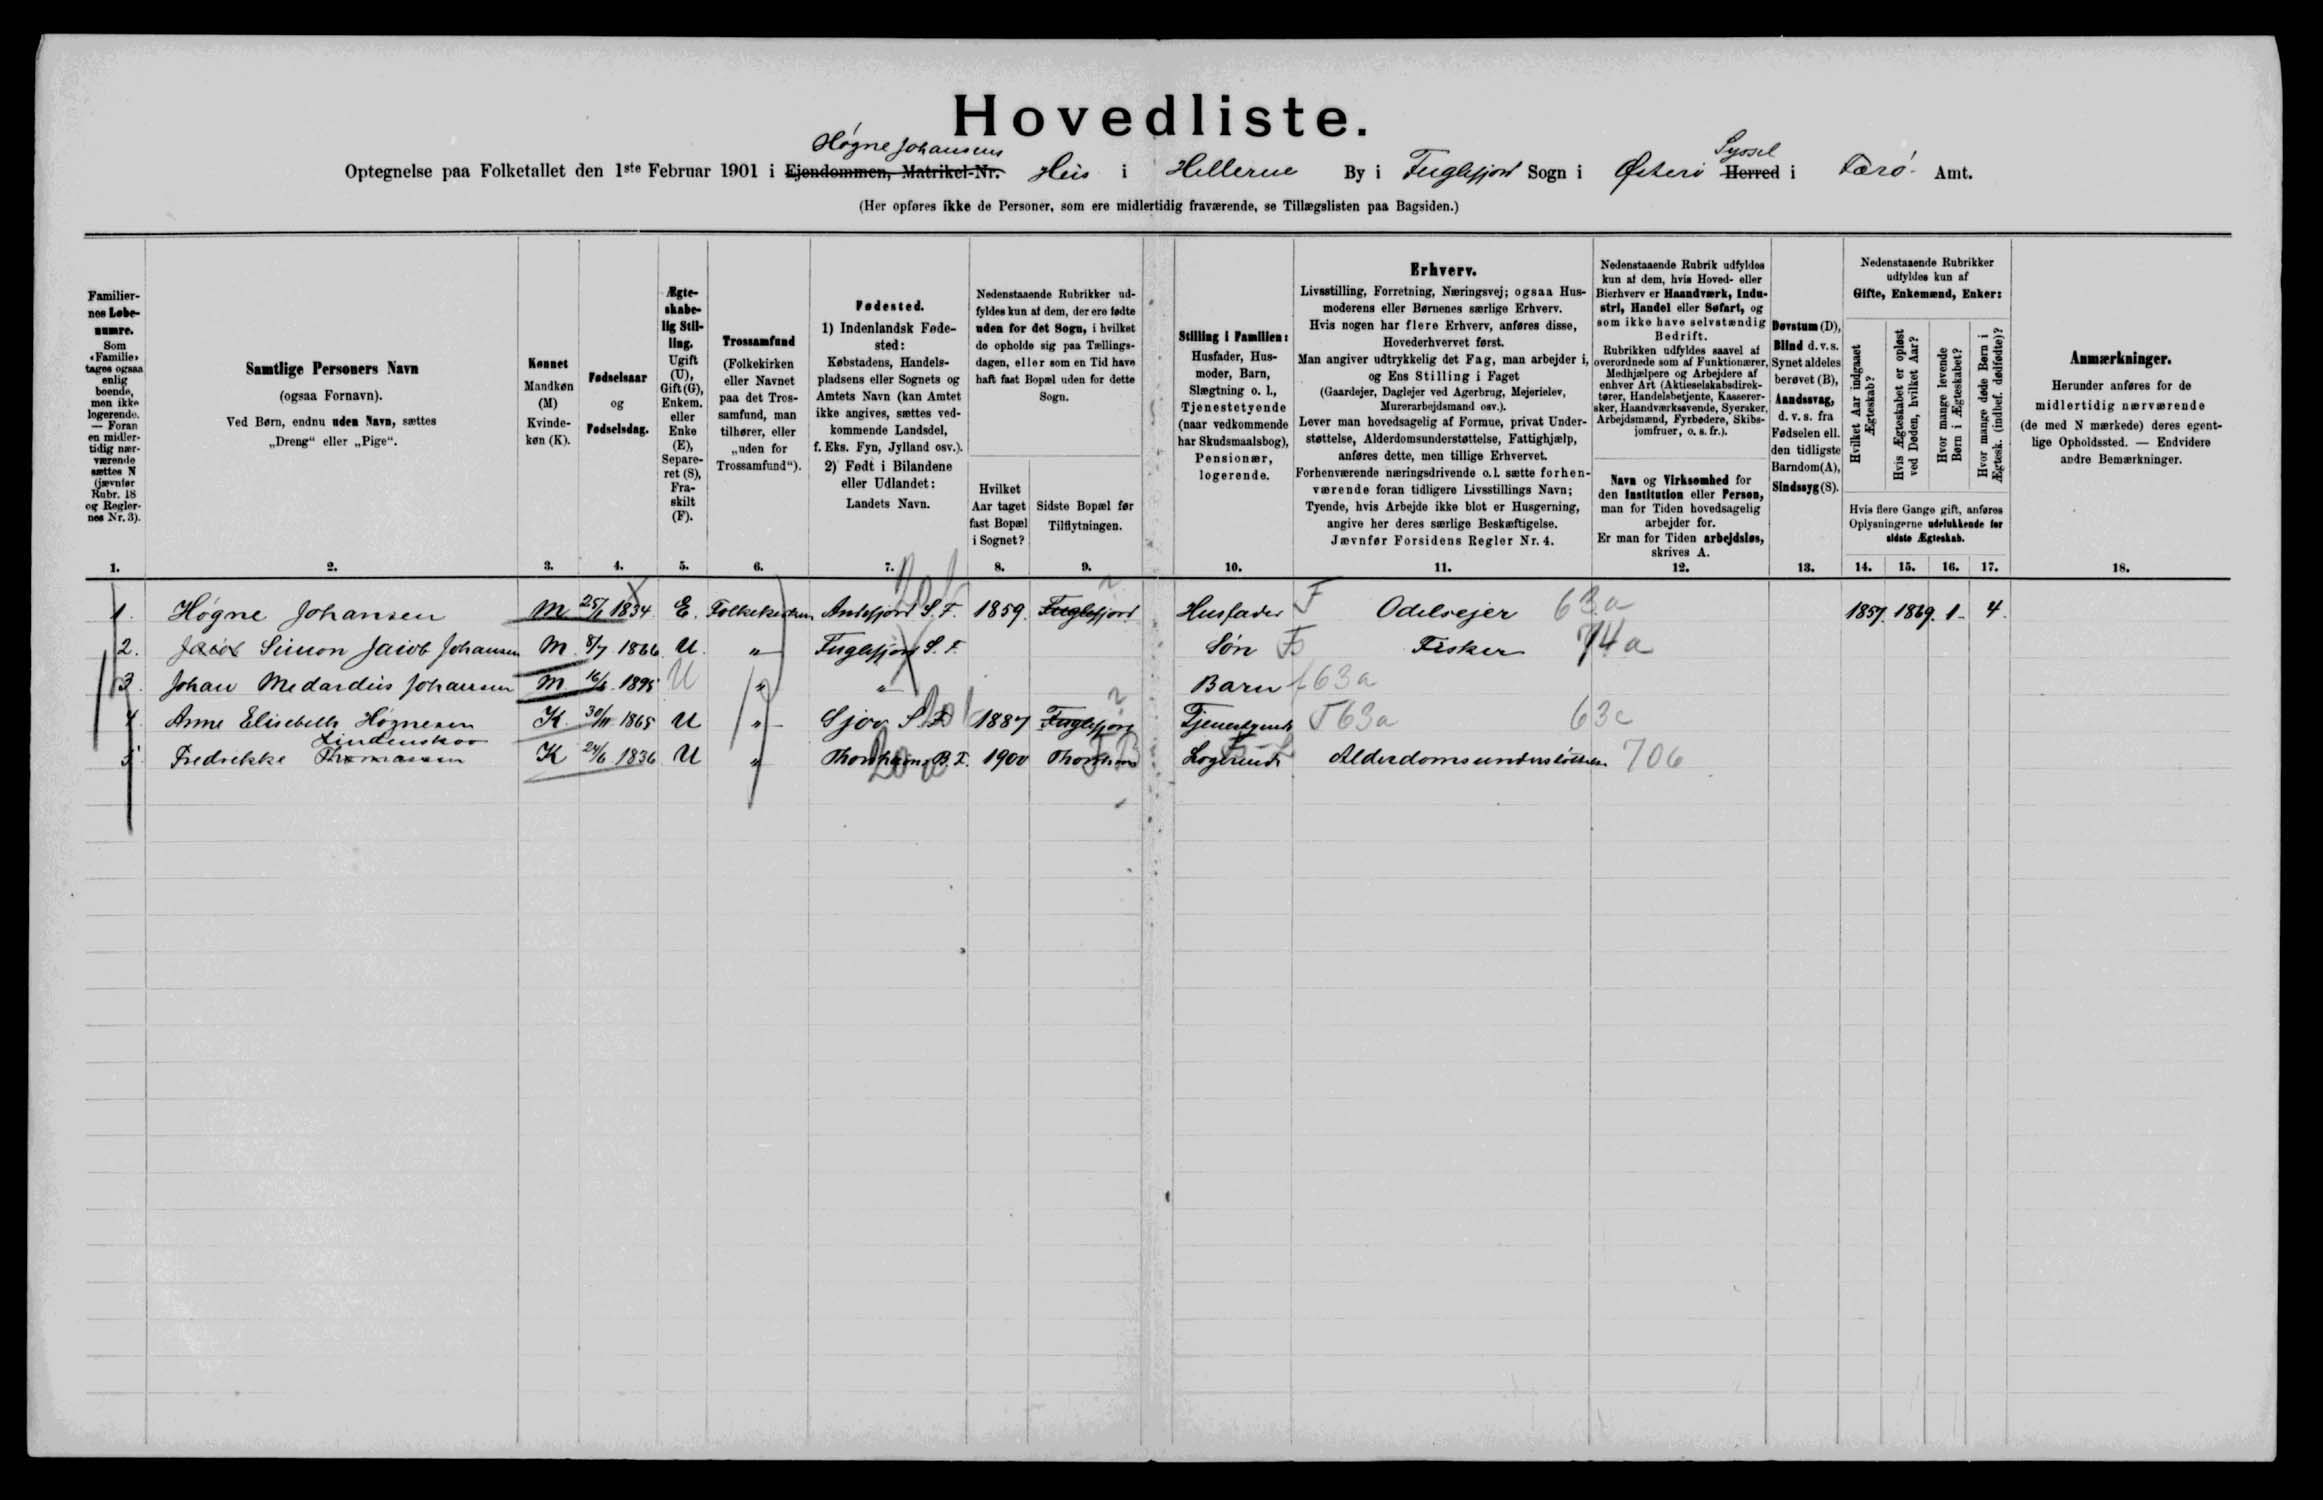 Hovedliste.
Høgne Johansens
Syssel
Optegnelse paa Folketallet den 1ste Februar 1901 i Ejendommen, Matrikel-Nr. Hus i Hellerne By i Fuglefjord Sogn i Østerø Herred i Færø Amt.
(Her opføres ikke de Personer, som ere midlertidig fraværende, se Tillægslisten paa Bagsiden.)
Familier-
nes Løbe-
numre.
Som
«Familie»
tages ogsaa
enlig
boende,
men ikke
logerende.
— Foran
en midler-
tidig nær-
værende
sættes N
(jævnfør
Rubr. 18
og Regler-
nes Nr. 3).
1.
Samtlige Personers Navn
(ogsaa Fornavn).
Ved Børn, endnu uden Navn, sættes
„Dreng“ eller „Pige“.
2.
Kønnet
Mandkøn
(M)
Kvinde-
køn (K).
3.
Fødselsaar
og
Fødselsdag.
4.
Ægte-
skabe-
lig Stil-
ling.
Ugift
(U),
Gift (G),
Enkem.
eller
Enke
(E),
Separe-
ret (S),
Fra-
skilt
(F).
5.
Trossamfund
(Folkekirken
eller Navnet
paa det Tros-
samfund, man
tilhører, eller
„uden for
Trossamfund“).
6.
Fødested.
1) Indenlandsk Føde-
sted:
Købstadens, Handels-
pladsens eller Sognets og
Amtets Navn (kan Amtet
ikke angives, sættes ved-
kommende Landsdel,
f. Eks. Fyn, Jylland osv.).
2) Født i Bilandene
eller Udlandet:
Landets Navn.
7.
Nedenstaaende Rubrikker ud-
fyldes kun af dem, der ere fødte
uden for det Sogn, i hvilket
de opholde sig paa Tællings-
dagen, eller som en Tid have
haft fast Bopæl uden for dette
Sogn.
Hvilket
Aar taget
fast Bopæl
i Sognet?
8.
Sidste Bopæl før
Tilflytningen.
9.
Stilling i Familien:
Husfader, Hus-
moder, Barn,
Slægtning o. l.,
Tjenestetyende
(naar vedkommende
har Skudsmaalsbog),
Pensionær,
logerende.
10.
Erhverv.
Livsstilling, Forretning, Næringsvej; ogsaa Hus-
moderens eller Børnenes særlige Erhverv.
Hvis nogen har flere Erhverv, anføres disse,
Hovederhvervet først.
Man angiver udtrykkelig det Fag, man arbejder i,
og Ens Stilling i Faget
(Gaardejer, Daglejer ved Agerbrug, Mejerielev,
Murerarbejdsmand osv.).
Lever man hovedsagelig af Formue, privat Under-
støttelse, Alderdomsunderstøttelse, Fattighjælp,
anføres dette, men tillige Erhvervet.
Forhenværende næringsdrivende o. l. sætte forhen-
værende foran tidligere Livsstillings Navn;
Tyende, hvis Arbejde ikke blot er Husgerning,
angive her deres særlige Beskæftigelse.
Jævnfør Forsidens Regler Nr. 4.
11.
Nedenstaaende Rubrik udfyldes
kun af dem, hvis Hoved- eller
Bierhverv er Haandværk, Indu-
stri, Handel eller Søfart, og
som ikke have selvstændig
Bedrift.
Rubrikken udfyldes saavel af
overordnede som af Funktionærer,
Medhjælpere og Arbejdere af
enhver Art (Aktieselskabsdirek-
tører, Handelsbetjente, Kasserer-
sker, Haandværkssvende, Syersker,
Arbejdsmænd, Fyrbødere, Skibs-
jomfruer, o. s. fr.).
Navn og Virksomhed for
den Institution eller Person,
man for Tiden hovedsagelig
arbejder for.
Er man for Tiden arbejdsløs,
skrives A.
12.
Døvstum (D),
Blind d. v. s.
Synet aldeles
berøvet (B),
Aandssvag,
d. v. s. fra
Fødselen ell.
den tidligste
Barndom (A),
Sindssyg (S).
13.
Nedenstaaende Rubrikker
udfyldes kun af
Gifte, Enkemænd, Enker:
Hvilket Aar indgaaet
Ægteskab?
Hvis Ægteskabet er opløst
ved Døden, hvilket Aar?
Hvor mange levende
Børn i Ægteskabet?
Hvor mange døde Børn i
Ægtesk. (indbef. dødfødte)?
Hvis flere Gange gift, anføres
Oplysningerne udelukkende for
sidste Ægteskab.
14. 15. 16. 17.
Anmærkninger.
Herunder anføres for de
midlertidig nærværende
(de med N mærkede) deres egent-
lige Opholdssted. — Endvidere
andre Bemærkninger.
18.
1. Høgne Johansen M 25/1 1834 E. Folkekirken Andefjord S. F. 1859. Fuglefjord Husfader F Odelsejer 63a 1857. 1869. 1. 4.
2. Jacob Simon Jacob Johansen M 8/7 1866 U. " Fuglefjord S. F. Søn Fisker 74a
3. Johan Medardus Johansen M 1895 U " " Barn 63a
4. Anne Elisebeth Høgnesen K. 30/11 1865 U " Sjov S. F. 1887 Fuglefjord Tjenestyende T 63a 63c
Lindenskov
5 Fredrikke Thomassen K 24/6 1836 U " Thorshavn B. F. 1900 Thorshavn Logerende Alderdomsunderstøttelse 706